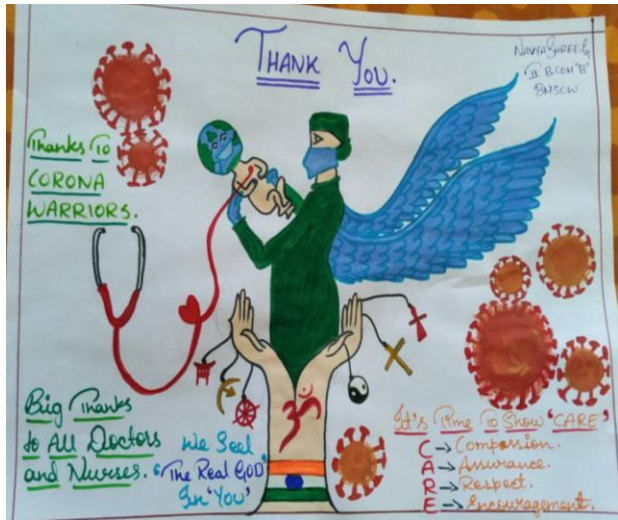 THANK YOU.
NAVYASHREE.G
II B.COM 'B'
BMSCW
Thanks To
CORONA
WARRIORS.
Big Thanks
to All Doctors
and Nurses.
We Seel
'The Real GOD'
In 'You'
ॐ
It's Time To Show 'CARE'
C → Compassion.
A → Assurance.
R → Respect.
E → Encouragement.